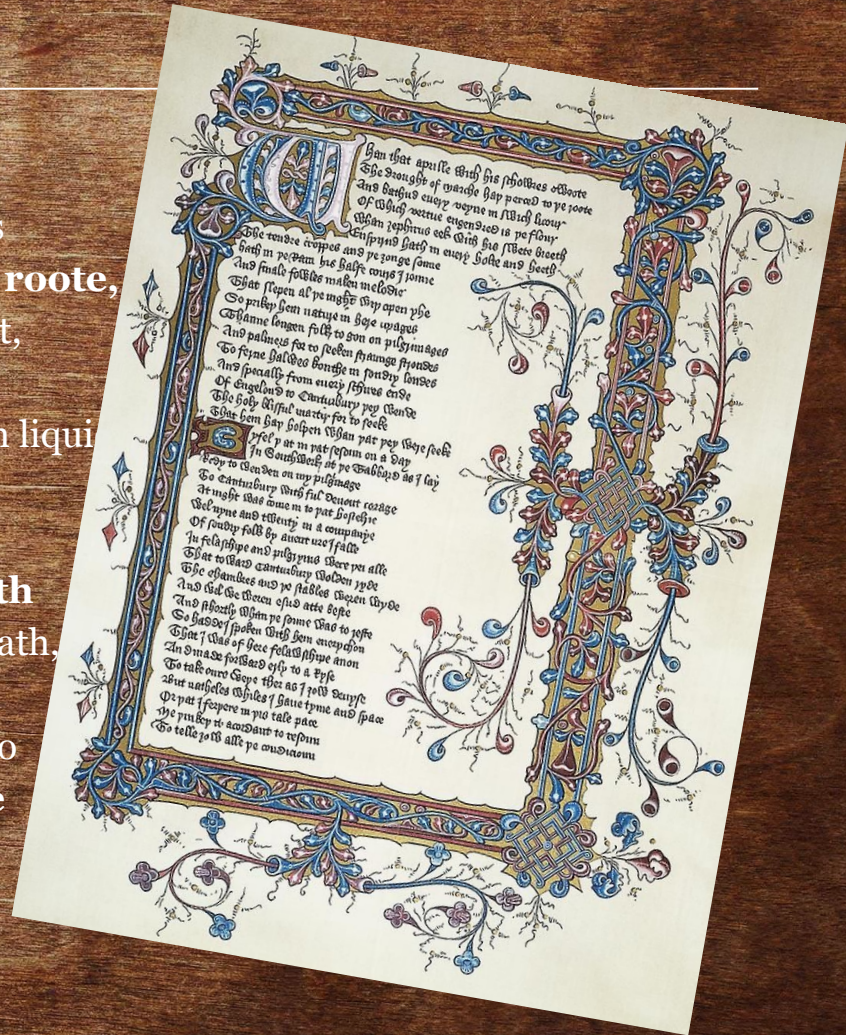 s
roote,
t,
n liqui
th
ath,
o
e
Whan that aprille with his showres swoote
The drought of marche haþ perced to þe roote
And bathud euery veyne in swich licour
Of which vertue engendred is þe flour
Whan zephirus eek with his swete breeth
Enspirud hath in euery holte and heeth
The tendre croppes and þe ȝonge sonne
hath in þe Ram his halfe cours I ronne
And smale fowles maken melodie
That slepen al þe night wiþ open yhe
So prikeþ hem nature in here corages
Thanne longen folk to gon on pilgrimages
And palmers for to seeken straunge strondes
To ferne halwes kouthe in sondry londes
And specially from euery schires ende
Of Engelond to Canturbury þey wende
The holy blisful martir for to seeke
That hem haþ holpen whan þat þey were seeke
Byfel þat in þat sesoun on a day
In Southwerk at þe Tabbard as I lay
Redy to wenden on my pilgrimage
To Canturbury with ful deuout corage
At night was come in to þat hostelrie
Wel nyne and twenty in a companye
Of sondry folk by auenture I falle
In felaschipe and pilgryms were þei alle
That toward Canturbury wolden ryde
The chambres and þe stables weren wyde
And wel we weren esud atte beste
And schortly whan þe sonne was to reste
So hadde I spoken with hem euerychon
That I was of here felawschipe anon
And made forward erly to aryse
To take oure weye ther as I ȝow deuyse
But natheles whiles I haue tyme and space
Or þat I ferþere in þis tale pace
Me þinkeþ it acordant to resoun
To telle ȝow alle þe condicioun